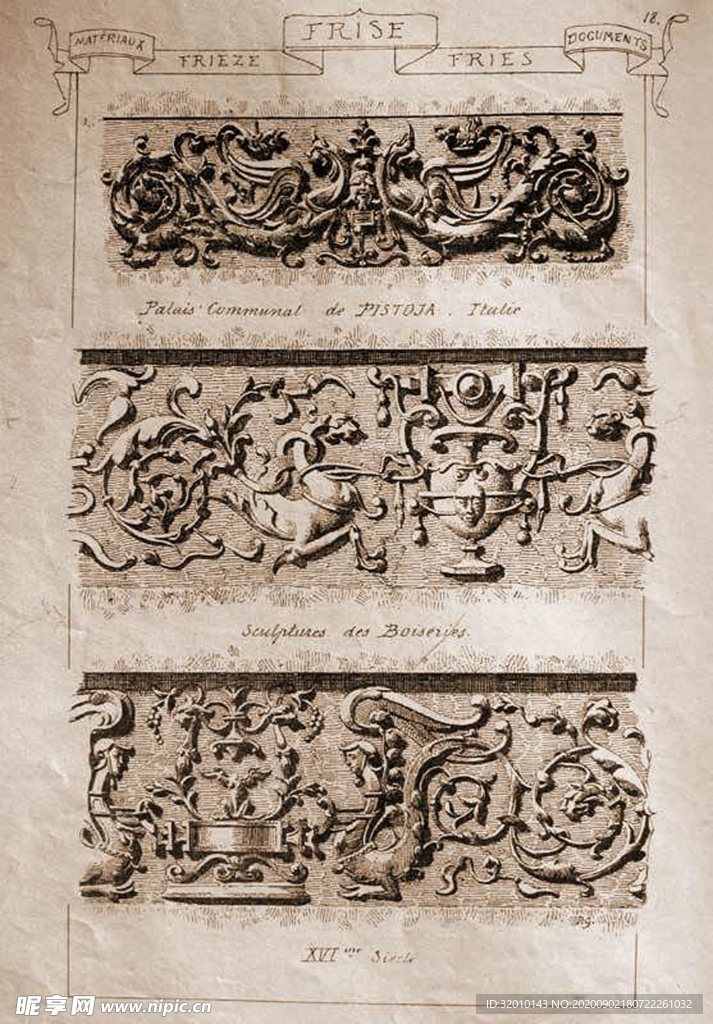 18.
FRISE
MATÉRIAUX
DOCUMENTS
FRIEZE
FRIES
1.
Palais Communal de PISTOJA. Italie
Sculptures des Boiseries.
XVIme Siècle
昵享网 www.nipic.cn
ID:32010143 NO:20200902180722261032